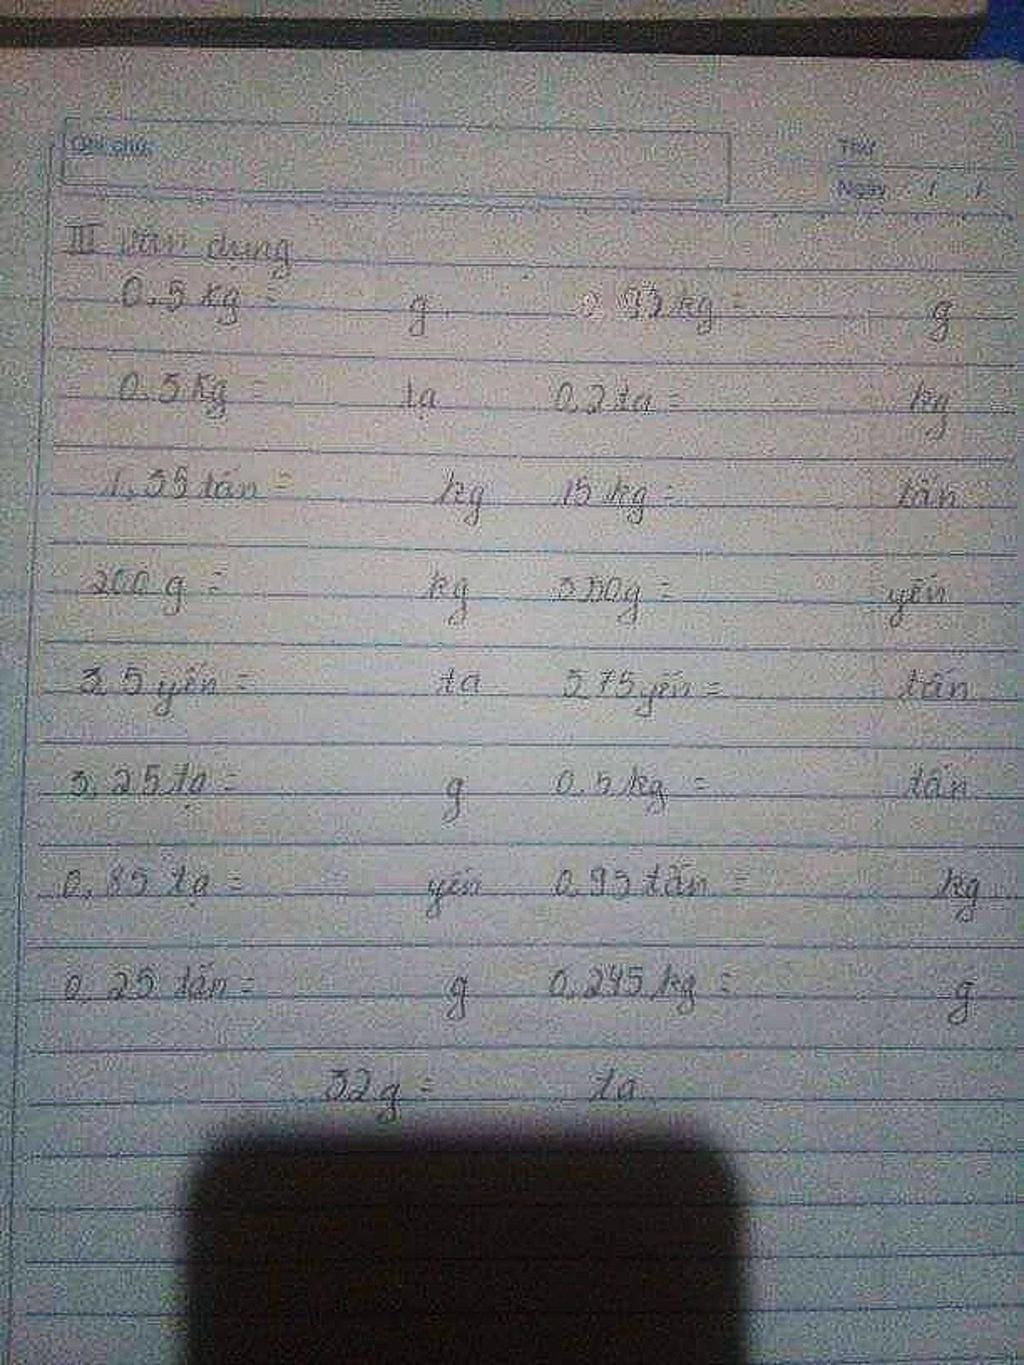 Thứ
Ngày / /
III Vận dụng
0,5 kg = g
0,5 kg = tạ 0,2 tạ = kg
1,35 tấn = kg 15 kg = tấn
200 g = kg 350g = yến
3,5 yến = tạ 375 yến = tấn
3,25 tạ = g 0,5 kg = tấn
0,85 tạ = yến 0,95 tấn = kg
0,25 tấn = g 0,245 kg = g
32g = tạ